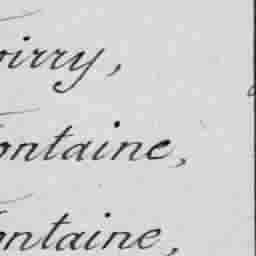 oirry,
ontaine,
ontaine,